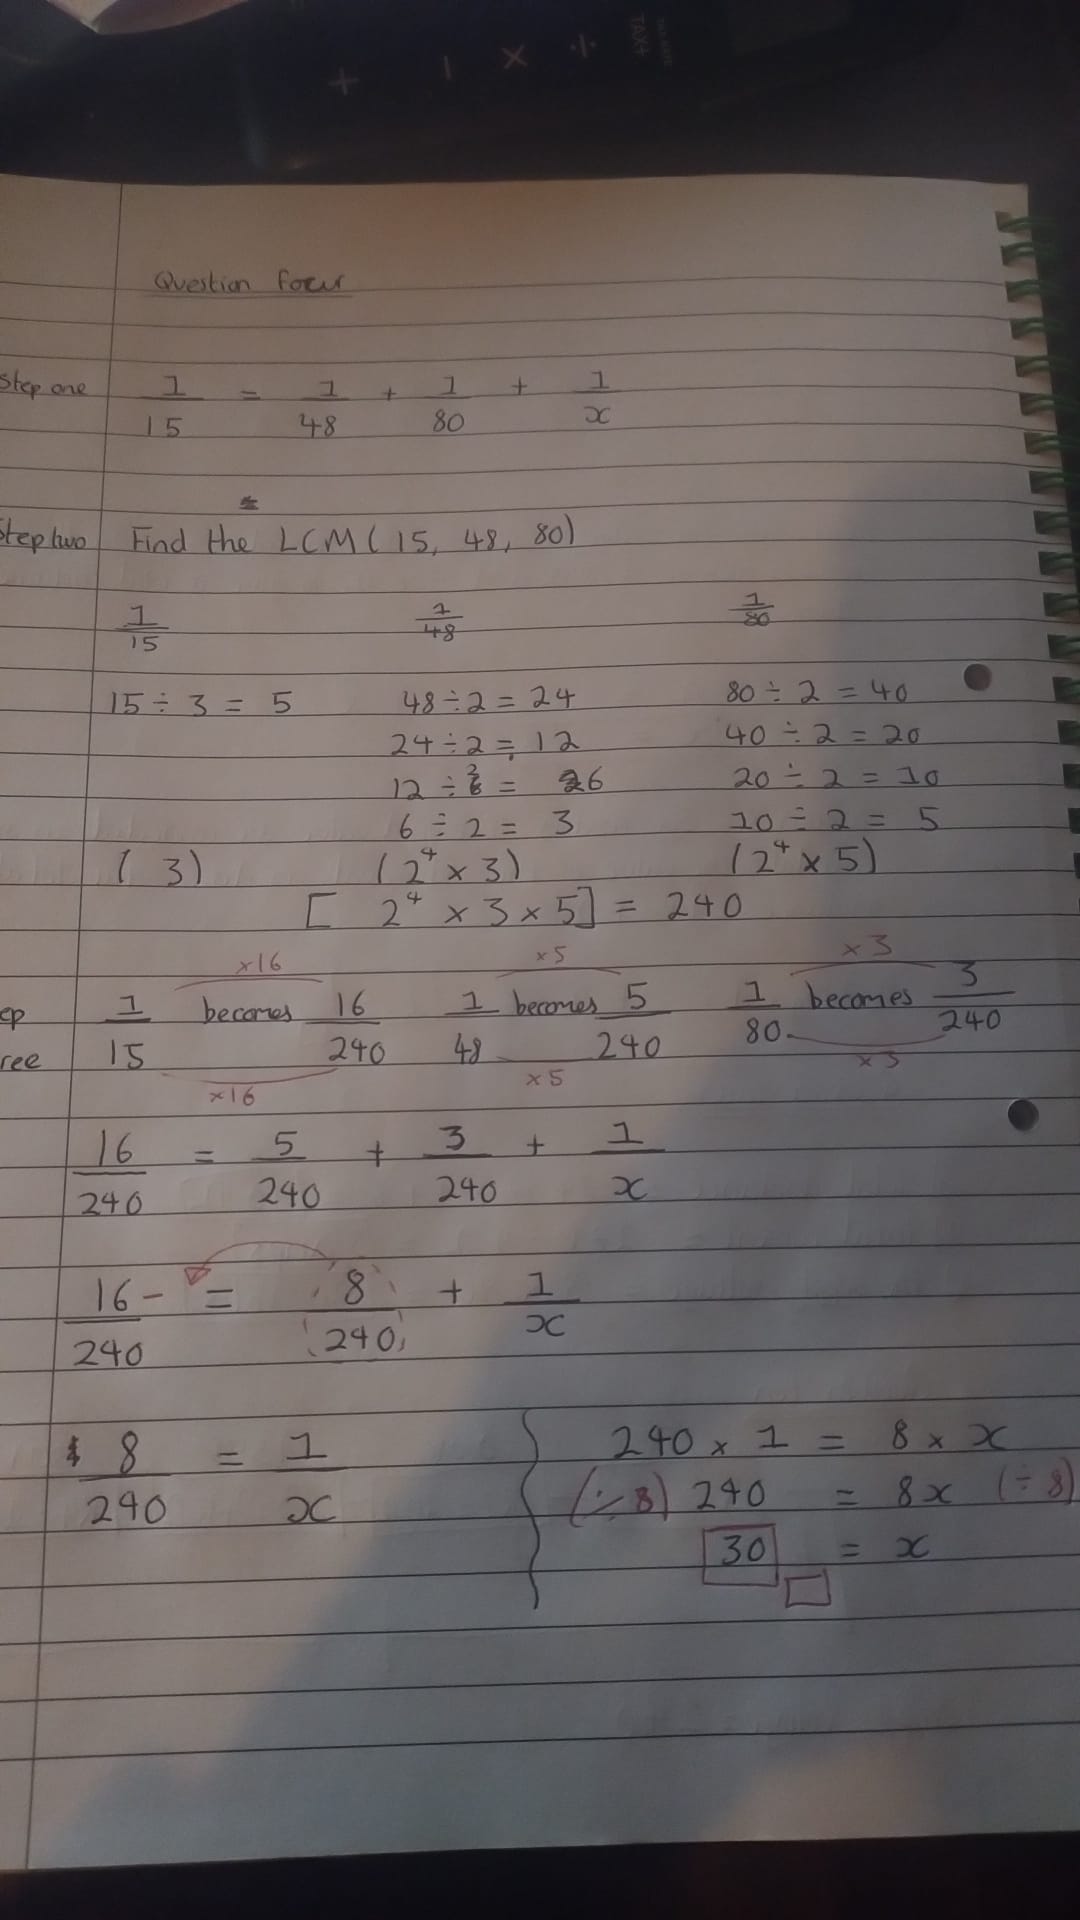 + − × ÷ TAX+
Question Four
Step one 1/15 = 1/48 + 1/80 + 1/x
Step two Find the LCM (15, 48, 80)
1/15 1/48 1/80
15 ÷ 3 = 5 48 ÷ 2 = 24 80 ÷ 2 = 40
24 ÷ 2 = 12 40 ÷ 2 = 20
12 ÷ 2 = 6 20 ÷ 2 = 10
6 ÷ 2 = 3 10 ÷ 2 = 5
( 3) (2⁴ × 3) (2⁴ × 5)
[ 2⁴ × 3 × 5] = 240
×16 ×5 ×3
ep ree 1/15 becomes 16/240 1/48 becomes 5/240 1/80 becomes 3/240
×16 ×5 ×3
16/240 = 5/240 + 3/240 + 1/x
16 −/240 = 8/240 + 1/x
8/240 = 1/x
240 × 1 = 8 × x
(÷ 8) 240 = 8x (÷ 8)
30 = x